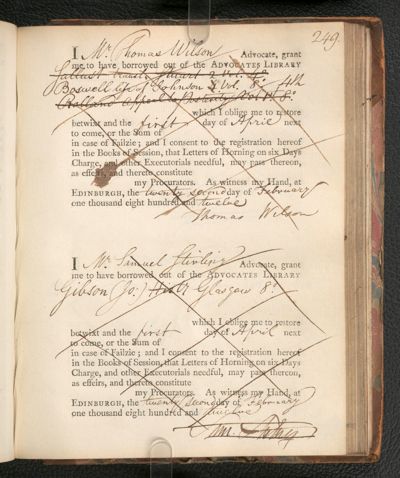 249.
I Mr. Thomas Wilson Advocate, grant
me to have borrowed out of the ADVOCATES LIBRARY
Sallust 2 Vol. 4o
Boswell Life of Johnson 4 Vol. 8o 4th
Appeal to
which I oblige me to restore
betwixt and the first day of April next
to come, or the Sum of
in case of Failzie; and I consent to the registration hereof
in the Books of Session, that Letters of Horning on six Days
Charge, and other Executorials needful, may pass thereon,
as effeirs, and thereto constitute
my Procurators. As witness my Hand, at
EDINBURGH, the twenty second day of February
one thousand eight hundred and twelve
Thomas Wilson
I Mr. Samuel Stirling Advocate, grant
me to have borrowed out of the ADVOCATES LIBRARY
Gibson (Jo:) Histy Glasgow 8o.
which I oblige me to restore
betwixt and the first day of April next
to come, or the Sum of
in case of Failzie; and I consent to the registration hereof
in the Books of Session, that Letters of Horning on six Days
Charge, and other Executorials needful, may pass thereon,
as effeirs, and thereto constitute
my Procurators. As witness my Hand, at
EDINBURGH, the twenty second day of February
one thousand eight hundred and twelve